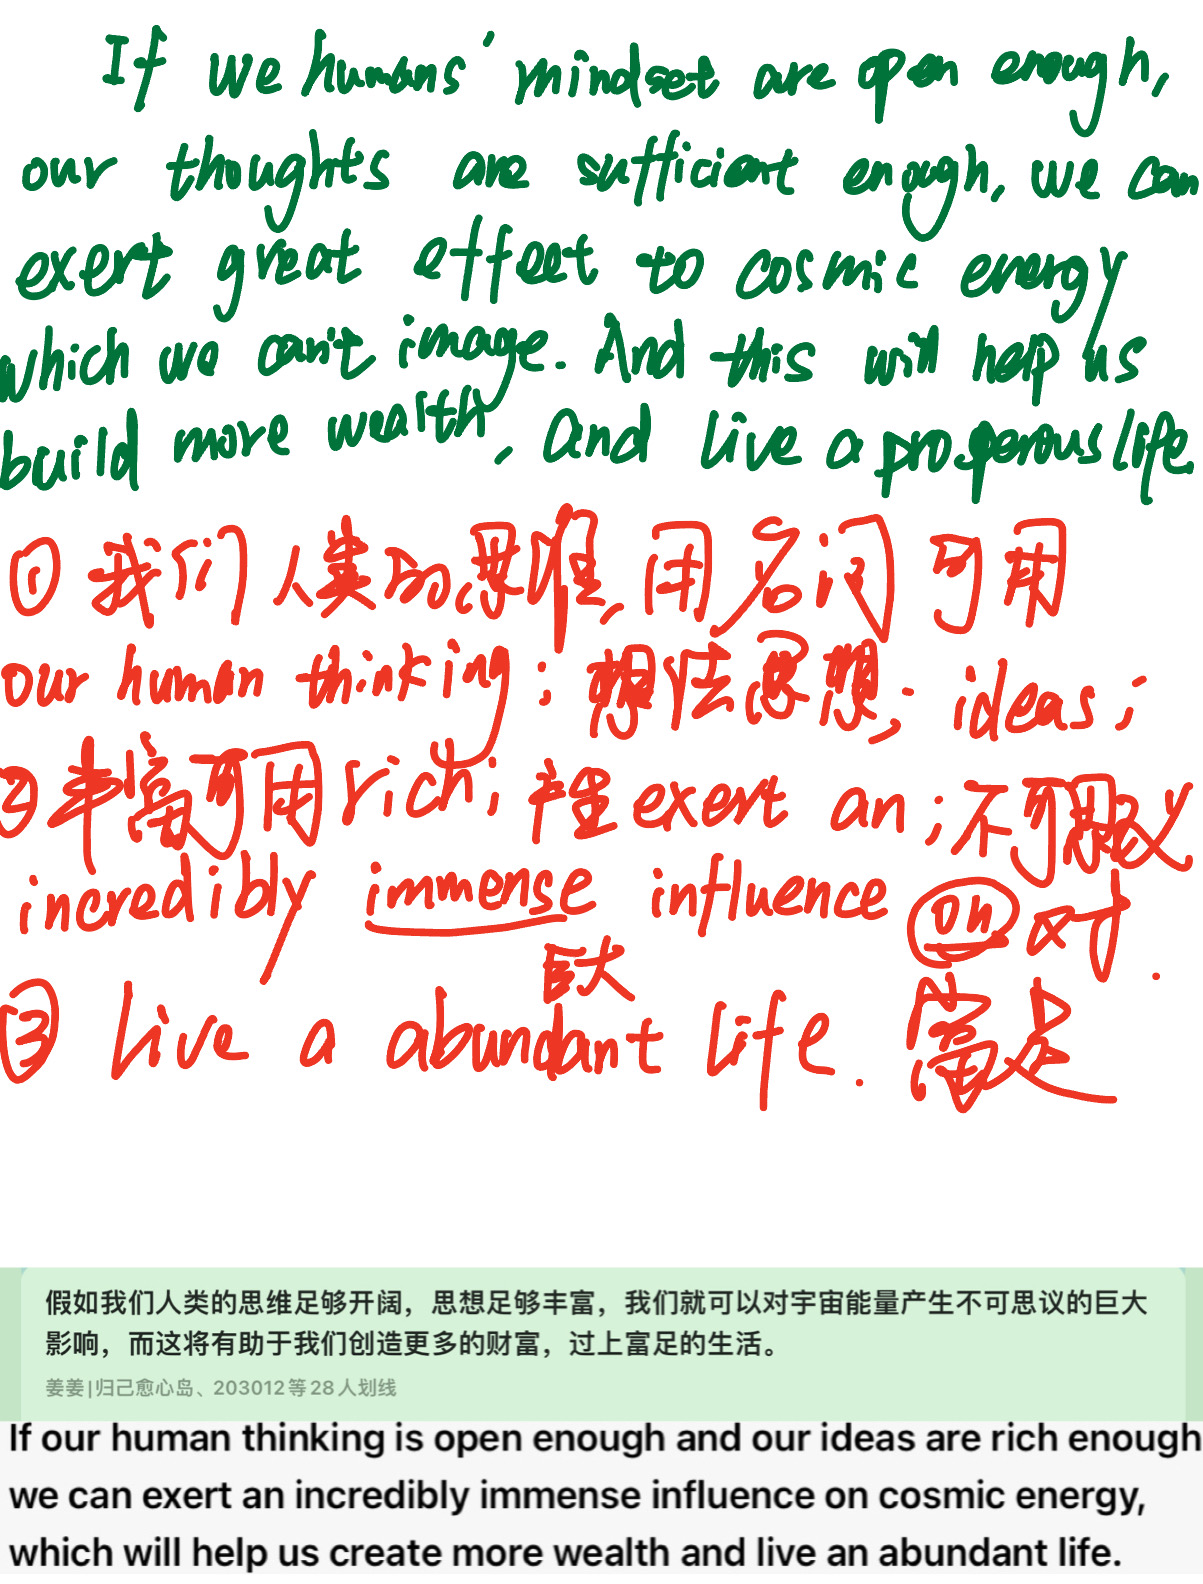 If we humans' mindset are open enough,
our thoughts are sufficient enough, we can
exert great effeet to cosmic energy
which we can't image. And this will help us
build more wealth, and live a prosperous life
① 我们人类的思维,用名词可用
our human thinking; 想法思想; ideas;
② 丰富可用rich; 产生 exert an; 不可思议
incredibly immense influence on 对.
巨大
③ live a abundant life. 富足
假如我们人类的思维足够开阔，思想足够丰富，我们就可以对宇宙能量产生不可思议的巨大
影响，而这将有助于我们创造更多的财富，过上富足的生活。
姜姜|归己愈心岛、203012等28人划线
If our human thinking is open enough and our ideas are rich enough
we can exert an incredibly immense influence on cosmic energy,
which will help us create more wealth and live an abundant life.